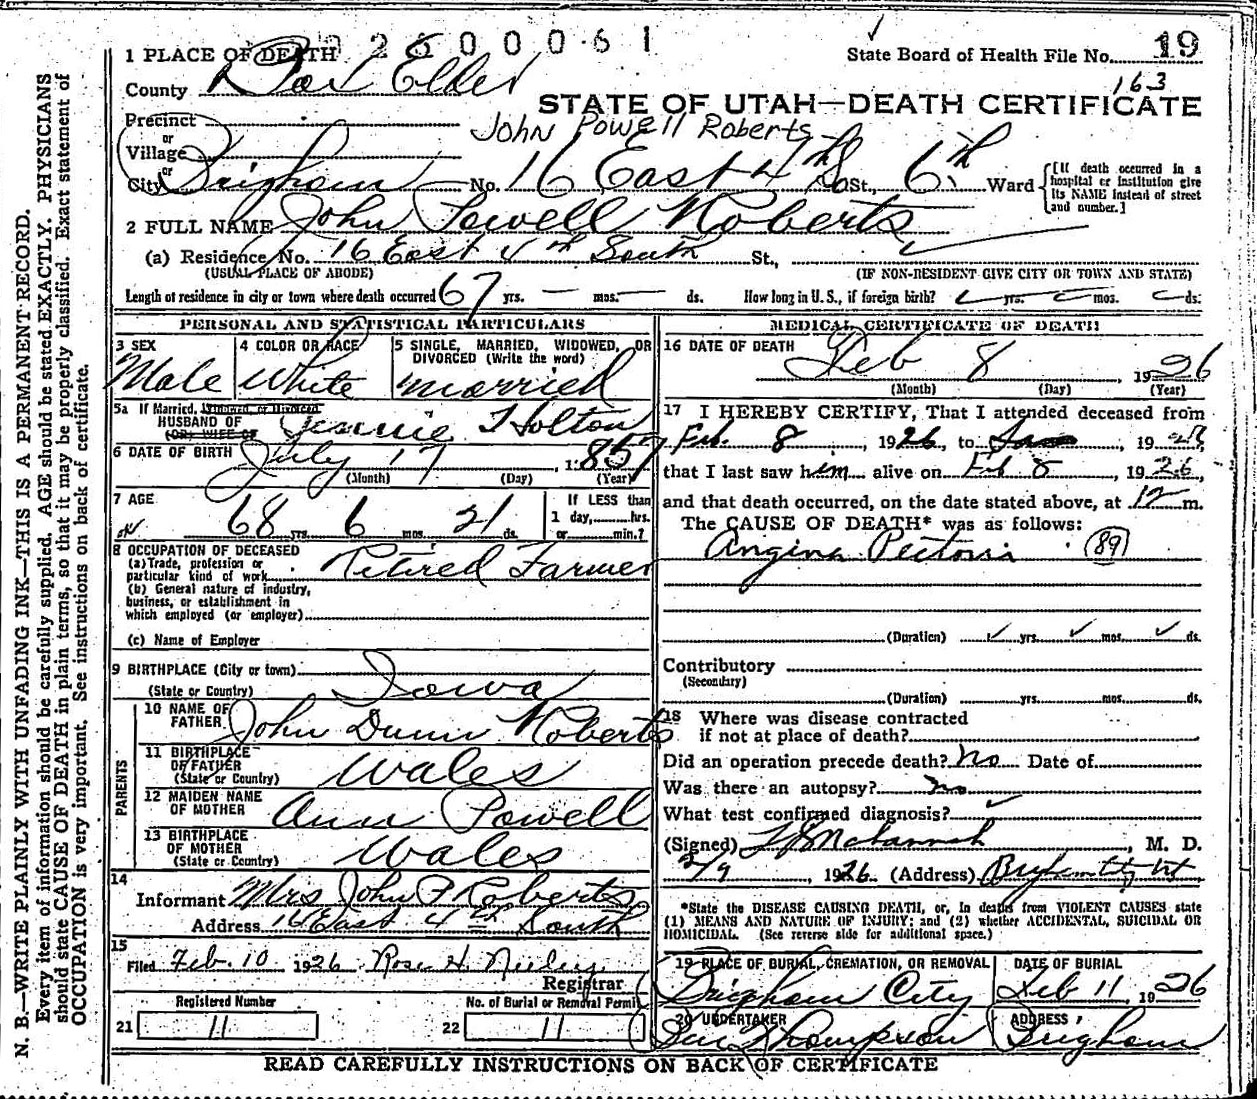 1 PLACE OF DEATH 02600061
State Board of Health File No. 19
163
County Box Elder
STATE OF UTAH—DEATH CERTIFICATE
Precinct
John Powell Roberts
or
Village
or
City Brigham No. 16 East 4th So St., 6th Ward
[If death occurred in a hospital or institution give its NAME instead of street and number.]
2 FULL NAME John Powell Roberts
(a) Residence No. 16 East 4th South St.,
(USUAL PLACE OF ABODE) (IF NON-RESIDENT GIVE CITY OR TOWN AND STATE)
Length of residence in city or town where death occurred 67 yrs. — mos. — ds. How long in U.S., if foreign birth? yrs. mos. ds.
PERSONAL AND STATISTICAL PARTICULARS
3 SEX 4 COLOR OR RACE 5 SINGLE, MARRIED, WIDOWED, OR DIVORCED (Write the word)
Male White married
5a If Married, Widowed, or Divorced
HUSBAND OF Jennie Holton
(OR) WIFE OF
6 DATE OF BIRTH July 17, 1857
(Month) (Day) (Year)
7 AGE 68 yrs. 6 mos. 21 ds.
If LESS than 1 day, hrs. or min.?
8 OCCUPATION OF DECEASED
(a) Trade, profession or particular kind of work Retired Farmer
(b) General nature of industry, business, or establishment in which employed (or employer)
(c) Name of Employer
9 BIRTHPLACE (City or town)
(State or Country) Iowa
PARENTS
10 NAME OF FATHER John Dunn Roberts
11 BIRTHPLACE OF FATHER (State or Country) Wales
12 MAIDEN NAME OF MOTHER Ann Powell
13 BIRTHPLACE OF MOTHER (State or Country) Wales
14
Informant Mrs John P Roberts
Address 16 East 4th South
15
Filed Feb. 10 1926 Rose H.
Registrar
Registered Number No. of Burial or Removal Permit
21 11 22 11
MEDICAL CERTIFICATE OF DEATH
16 DATE OF DEATH
Feb 8, 1926
(Month) (Day) (Year)
17 I HEREBY CERTIFY, That I attended deceased from
Feb. 8 1926, to 19
that I last saw him alive on Feb 8, 1926,
and that death occurred, on the date stated above, at 12 m.
The CAUSE OF DEATH* was as follows:
Angina Pectoris (89)
(Duration) yrs. mos. ds.
Contributory
(Secondary)
(Duration) yrs. mos. ds.
18 Where was disease contracted
if not at place of death?
Did an operation precede death? No Date of
Was there an autopsy? no
What test confirmed diagnosis?
(Signed) M. D.
2/9, 1926 (Address)
*State the DISEASE CAUSING DEATH, or, in deaths from VIOLENT CAUSES state
(1) MEANS AND NATURE OF INJURY; and (2) whether ACCIDENTAL, SUICIDAL OR
HOMICIDAL. (See reverse side for additional space.)
19 PLACE OF BURIAL, CREMATION, OR REMOVAL DATE OF BURIAL
Brigham City Feb 11, 1926
20 UNDERTAKER ADDRESS
Thompson Brigham
READ CAREFULLY INSTRUCTIONS ON BACK OF CERTIFICATE
N. B.—WRITE PLAINLY WITH UNFADING INK—THIS IS A PERMANENT RECORD.
Every item of information should be carefully supplied. AGE should be stated EXACTLY. PHYSICIANS
should state CAUSE OF DEATH in plain terms, so that it may be properly classified. Exact statement of
OCCUPATION is very important. See instructions on back of certificate.